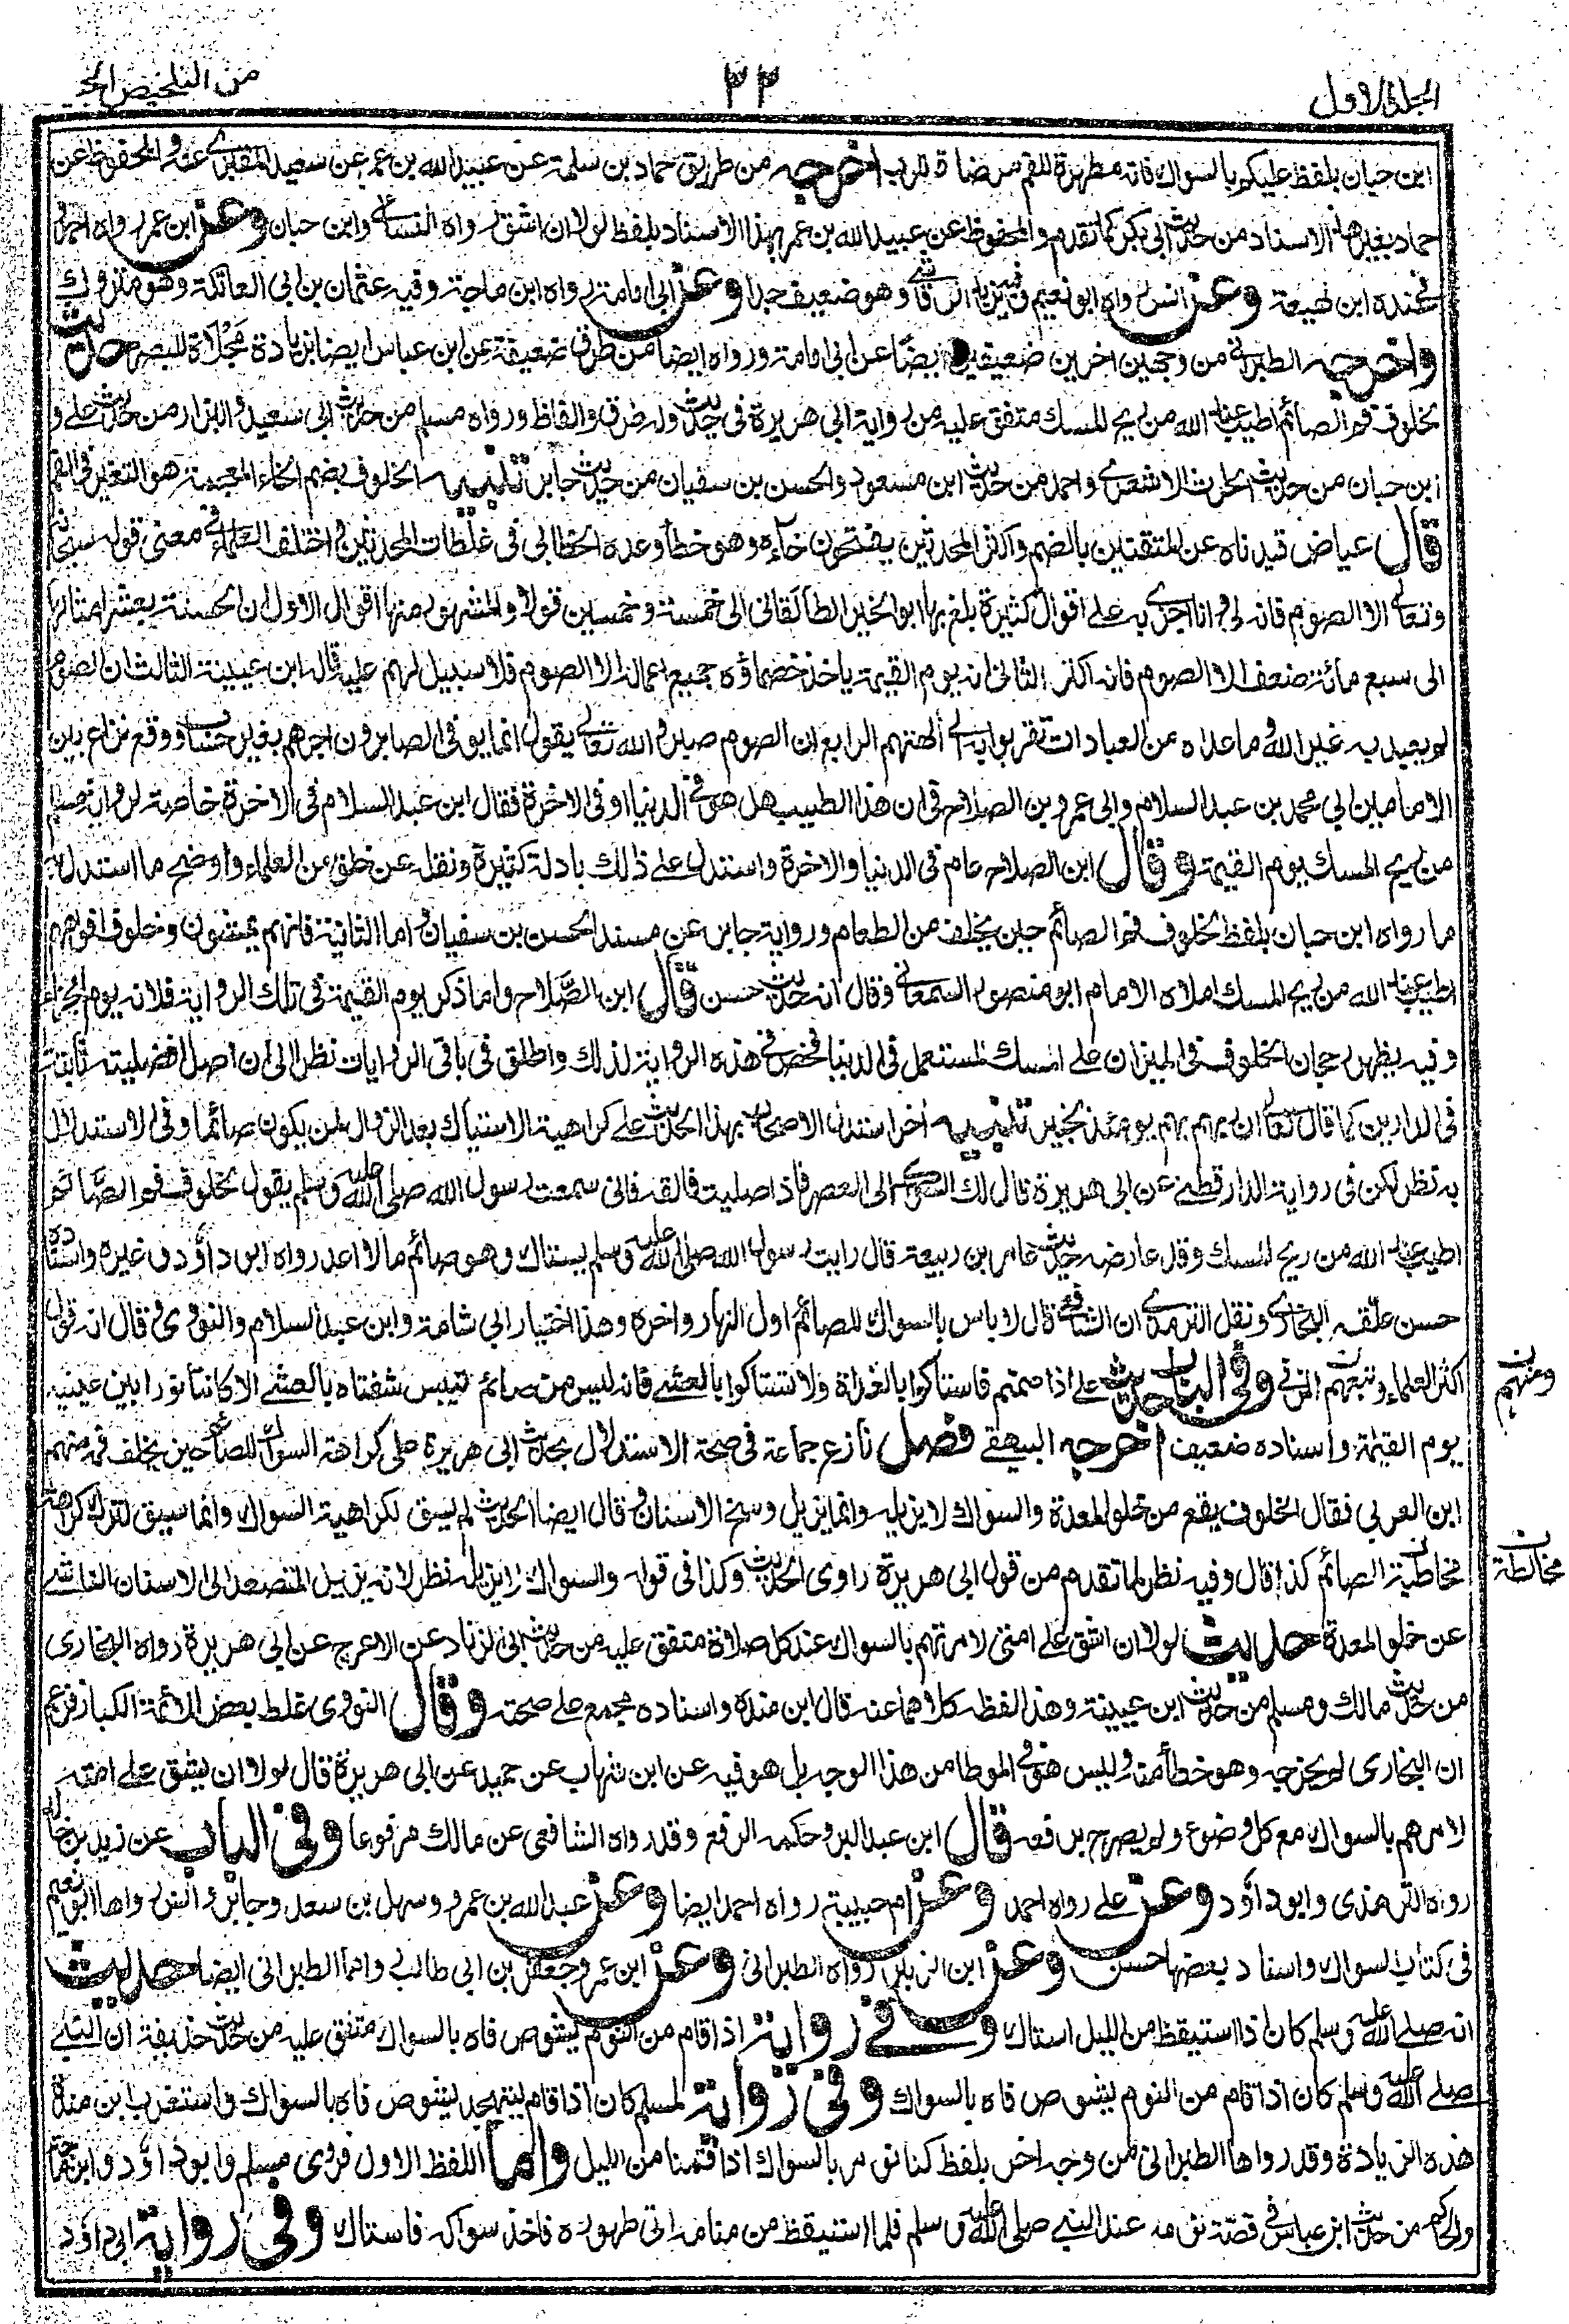 المجلد الاول
٣٣
من التلخيص الحبير
ابن حبان بلفظ عليكم بالسواك فانه مطهرة للفم مرضاة للرب اخرجه من طريق حماد بن سلمة عن عبيد الله بن عمر عن سعيد المقبرى عنه والمحفوظ عن
حماد بغير هذا الاسناد من حديث ابى بكر كما تقدم والمحفوظ عن عبيد الله بن عمر بهذا الاسناد بلفظ لولا ان اشق رواه النسائى وابن حبان وعن ابن عمر رواه احمد
ابن لهيعة وعن انس رواه ابو نعيم وفيه يزيد الرقاشى وهو ضعيف جدا وعن ابى امامة رواه ابن ماجة وفيه عثمان بن ابى العاتكة وهو متروك
واخرجه الطبرانى من وجهين اخرين ضعيفين ايضا عن ابى امامة ورواه ايضا من طرق ضعيفة عن ابن عباس ايضا بزيادة مجلاة للبصر حديث
لخلوف فم الصائم اطيب عند الله من ريح المسك متفق عليه من رواية ابى هريرة فى حديث وله طرق والفاظ ورواه مسلم من حديث ابى سعيد والبزار من حديث على و
ابن حبان من حديث الحرث الاشعرى واحمد من حديث ابن مسعود والحسن بن سفيان من حديث جابر تنبيه الخلوف بضم الخاء المعجمة هو التغير فى الفم
قال عياض قيدناه عن المتقنين بالضم واكثر المحدثين يفتحون خاءه وهو خطأ وعده الخطابى فى غلطات المحدثين واختلف العلماء فى معنى قوله سبحانه
وتعالى الا الصوم فانه لى وانا اجزى به على اقوال كثيرة بلغ بها ابو الخير الطالقانى الى خمسة وخمسين قولا والمشهور منها اقوال الاول ان الحسنة بعشر امثالها
الى سبع مائة ضعف الا الصوم فانه اكثر الثانى انه يوم القيمة ياخذ خصماؤه جميع اعماله الا الصوم فلا سبيل لهم عليه قاله ابن عيينة الثالث ان الصوم
لم يعبد به غير الله وما عداه من العبادات تقربوا به الى الهتهم الرابع ان الصوم صبر والله تعالى يقول انما يوفى الصابرون اجرهم بغير حساب ووقع نزاع بين
الامامين ابى محمد بن عبد السلام وابى عمرو بن الصلاح فى ان هذا الطيب هل هو فى الدنيا او فى الاخرة فقال ابن عبد السلام فى الاخرة خاصة لرواية مسلم
من ريح المسك يوم القيمة وقال ابن الصلاح عام فى الدنيا والاخرة واستدل على ذلك بادلة كثيرة ونقله عن خلق من العلماء واوضح ما استدل به
ما رواه ابن حبان بلفظ لخلوف فم الصائم حين يخلف من الطعام ورواية جابر عن مسند الحسن بن سفيان واما الثانية فانهم يمسون وخلوف افواههم
اطيب عند الله من ريح المسك املاه الامام ابو منصور السمعانى وقال انه حديث حسن قال ابن الصلاح واما ذكر يوم القيمة فى تلك الرواية فلانه يوم الجزاء
وفيه يظهر رجحان الخلوف فى الميزان على المسك المستعمل فى الدنيا فخص فى هذه الرواية لذلك واطلق فى باقى الروايات نظرا الى ان اصل افضليته ثابتة
فى الدارين كما قال تعالى ان ربهم بهم يومئذ لخبير تنبيه اخر استدل الاصحاب بهذا الحديث على كراهية الاستياك بعد الزوال لمن يكون صائما وفى الاستدلال
به نظر لكن فى رواية الدارقطنى عن ابى هريرة قال لك السواك الى العصر فاذا صليت فالقه فانى سمعت رسول الله صلى الله عليه وسلم يقول لخلوف فم الصائم
اطيب عند الله من ريح المسك وقد عارضه حديث عامر بن ربيعة قال رايت رسول الله صلى الله عليه وسلم يستاك وهو صائم ما لا اعد رواه ابو داؤد وغيره واسناده
حسن علقه البخارى ونقل الترمذى ان الشافعى قال لا باس بالسواك للصائم اول النهار واخره وهذا اختيار ابى شامة وابن عبد السلام والنووى وقال انه قول
اكثر العلماء وتبعهم المزنى وفى الباب حديث على اذا صمتم فاستاكوا بالغداة ولا تستاكوا بالعشى فانه ليس من صائم تيبس شفتاه بالعشى الا كانتا نورا بين عينيه
يوم القيمة واسناده ضعيف اخرجه البيهقى فصل نازع جماعة فى صحة الاستدلال بحديث ابى هريرة على كراهة السواك للصائم حين يخلف فمه منهم
ومنهم
ابن العربى فقال الخلوف يقع من خلو المعدة والسواك لا يزيله وانما يزيل وسخ الاسنان وقال ايضا الحديث لم يسق لكراهية السواك وانما سيق لترك كراهة
مخاطبة الصائم كذا قال وفيه نظر لما تقدم من قول ابى هريرة راوى الحديث وكذا فى قوله والسواك لا يزيله نظر لانه يزيل المتصعد الى الاسنان الناشى
مخالطة
عن خلو المعدة حديث لولا ان اشق على امتى لامرتهم بالسواك عند كل صلاة متفق عليه من حديث ابى الزناد عن الاعرج عن ابى هريرة رواه البخارى
من حديث مالك ومسلم من حديث ابن عيينة وهذا لفظه كلاهما عنه قال ابن مندة واسناده مجمع على صحته وقال النووى غلط بعض الائمة الكبار فزعم
ان البخارى لم يخرجه وهو خطأ منه وليس هو فى الموطا من هذا الوجه بل هو فيه عن ابن شهاب عن حميد عن ابى هريرة قال لولا ان يشق على امته
لامرهم بالسواك مع كل وضوء ولم يصرح برفعه قال ابن عبد البر وحكمه الرفع وقد رواه الشافعى عن مالك مرفوعا وفى الباب عن زيد بن خالد
رواه الترمذى وابو داؤد وعن على رواه احمد وعن ام حبيبة رواه احمد ايضا وعن عبد الله بن عمرو وسهل بن سعد وجابر وانس رواها ابو نعيم
فى كتاب السواك واسناد بعضها حسن وعن ابن الزبير رواه الطبرانى وعن ابن عمر وجعفر بن ابى طالب رواهما الطبرانى ايضا حديث
انه صلى الله عليه وسلم كان اذا استيقظ من الليل استاك وفى رواية اذا قام من النوم يشوص فاه بالسواك متفق عليه من حديث حذيفة ان النبى
صلى الله عليه وسلم كان اذا قام من النوم يشوص فاه بالسواك وفى رواية لمسلم كان اذا قام ليتهجد يشوص فاه بالسواك واستغرب ابن مندة
هذه الزيادة وقد رواها الطبرانى من وجه اخر بلفظ كنا نؤمر بالسواك اذا قمنا من الليل واما اللفظ الاول فروى مسلم وابو داؤد وابن ماجة
والحاكم من حديث ابن عباس فى قصة نومه عند النبى صلى الله عليه وسلم فلما استيقظ من منامه اتى طهوره فاخذ سواكه فاستاك وفى رواية ابى داؤد